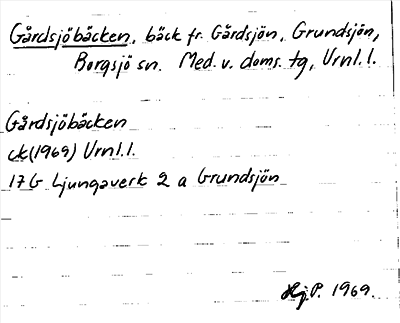 Gårdsjöbäcken, bäck fr. Gårdsjön, Grundsjön,
Borgsjö sn. Med. v. doms. tg, Vrnl. l.
Gårdsjöbäcken
ek (1969) Vrnl. l.
17G Ljungaverk 2 a Grundsjön
Hj P. 1969.